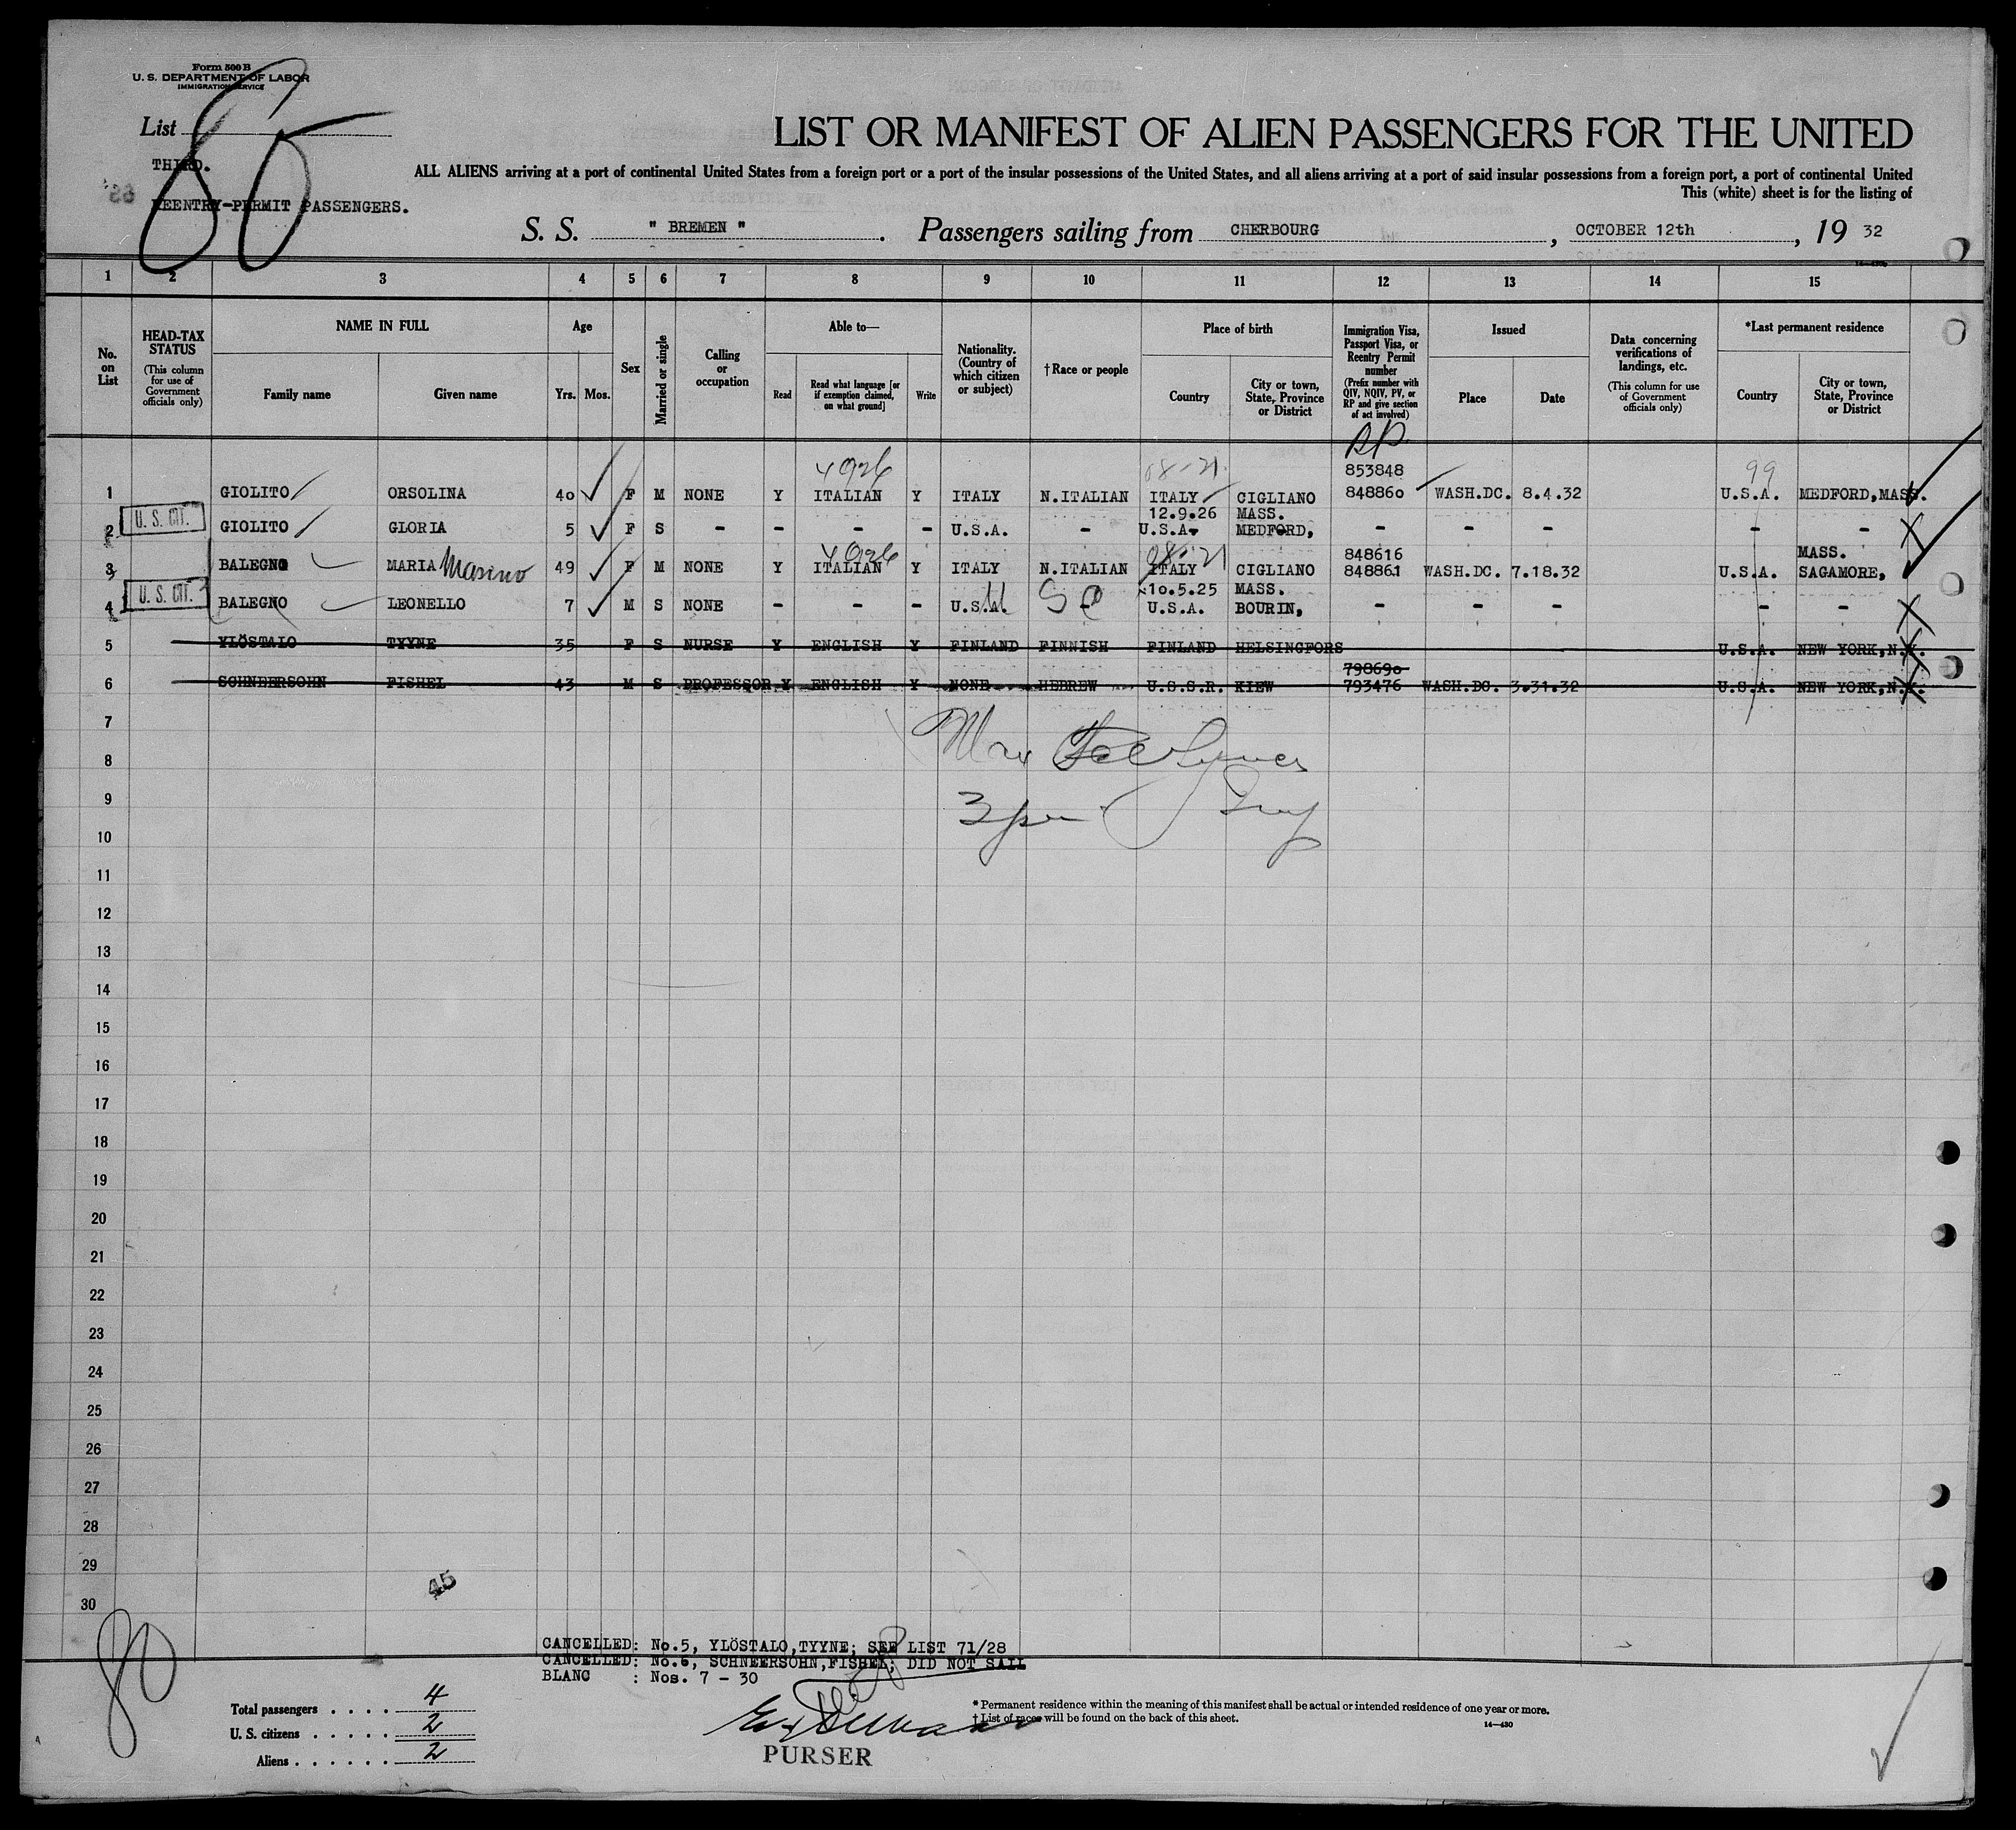 Form 500 B
U. S. DEPARTMENT OF LABOR
IMMIGRATION SERVICE
List 80
THIRD.
REENTRY-PERMIT PASSENGERS.
LIST OR MANIFEST OF ALIEN PASSENGERS FOR THE UNITED
ALL ALIENS arriving at a port of continental United States from a foreign port or a port of the insular possessions of the United States, and all aliens arriving at a port of said insular possessions from a foreign port, a port of continental United
This (white) sheet is for the listing of
S. S. " BREMEN ". Passengers sailing from CHERBOURG, OCTOBER 12th, 19 32
1 2 3 4 5 6 7 8 9 10 11 12 13 14 15
No. on List
HEAD-TAX STATUS
(This column for use of Government officials only)
NAME IN FULL
Family name
Given name
Age
Yrs. Mos.
Sex
Married or single
Calling or occupation
Able to—
Read
Read what language [or if exemption claimed, on what ground]
Write
Nationality. (Country of which citizen or subject)
† Race or people
Place of birth
Country
City or town, State, Province or District
Immigration Visa, Passport Visa, or Reentry Permit number
(Prefix number with QIV, NQIV, PV, or RP and give section of act involved)
Issued
Place
Date
Data concerning verifications of landings, etc.
(This column for use of Government officials only)
*Last permanent residence
Country
City or town, State, Province or District
RP
853848
99
1 GIOLITO ORSOLINA 40 F M NONE Y ITALIAN Y ITALY N.ITALIAN ITALY CIGLIANO 848860 WASH.DC. 8.4.32 U.S.A. MEDFORD,MASS.
12.9.26 MASS.
U. S. CIT.
2 GIOLITO GLORIA 5 F S - - - - U.S.A. - U.S.A. MEDFORD, - - - - -
848616 MASS.
3 BALEGNO MARIA Masino 49 F M NONE Y ITALIAN Y ITALY N.ITALIAN ITALY CIGLIANO 848861 WASH.DC. 7.18.32 U.S.A. SAGAMORE,
10.5.25 MASS.
U. S. CIT.
4 BALEGNO LEONELLO 7 M S NONE - - - U.S.A. - U.S.A. BOURIN, - - - - -
5 YLÖSTALO TYYNE 35 F S NURSE Y ENGLISH Y FINLAND FINNISH FINLAND HELSINGFORS U.S.A. NEW YORK,N.Y.
798690
6 SCHNEERSOHN FISHEL 43 M S PROFESSOR Y ENGLISH Y NONE HEBREW U.S.S.R. KIEW 793476 WASH.DC. 3.31.32 U.S.A. NEW YORK,N.Y.
7
8
9
10
11
12
13
14
15
16
17
18
19
20
21
22
23
24
25
26
27
28
29
30
45
80
CANCELLED: No.5, YLÖSTALO,TYYNE; SEE LIST 71/28
CANCELLED: No.6, SCHNEERSOHN,FISHEL; DID NOT SAIL
BLANC : Nos. 7 - 30
Total passengers . . . . 4
U. S. citizens . . . . . 2
Aliens . . . . . . 2
PURSER
* Permanent residence within the meaning of this manifest shall be actual or intended residence of one year or more.
† List of races will be found on the back of this sheet.
14—430